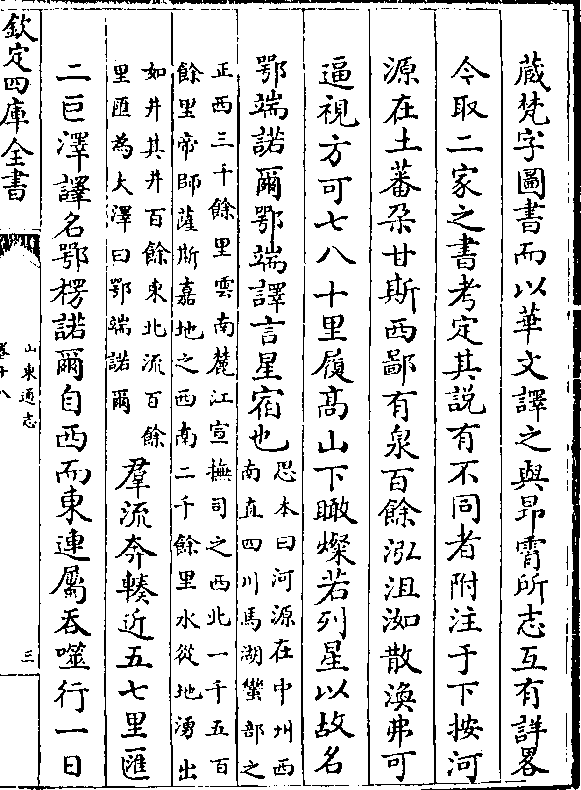 蔵梵字圖書而以華文譯之與昂霄所志互有詳畧
今取二家之書考定其説有不同者附注于下按河
源在土蕃朶甘斯西鄙有泉百餘泓沮洳散渙弗可
逼視方可七八十里履髙山下瞰燦若列星以故名
鄂端諾爾鄂端譯言星宿也
思本曰河源在中州西
南直四川馬湖蠻部之
正西三千餘里雲南麓江宣撫司之西北一千五百
餘里帝師薩斯嘉地之西南二千餘里水從地湧出
如井其井百餘東北流百餘
里匯為大澤曰鄂端諾爾
羣流奔輳近五七里匯
二巨澤譯名鄂楞諾爾自西而東連屬吞噬行一日
欽定四庫全書
山東通志
卷十八
三